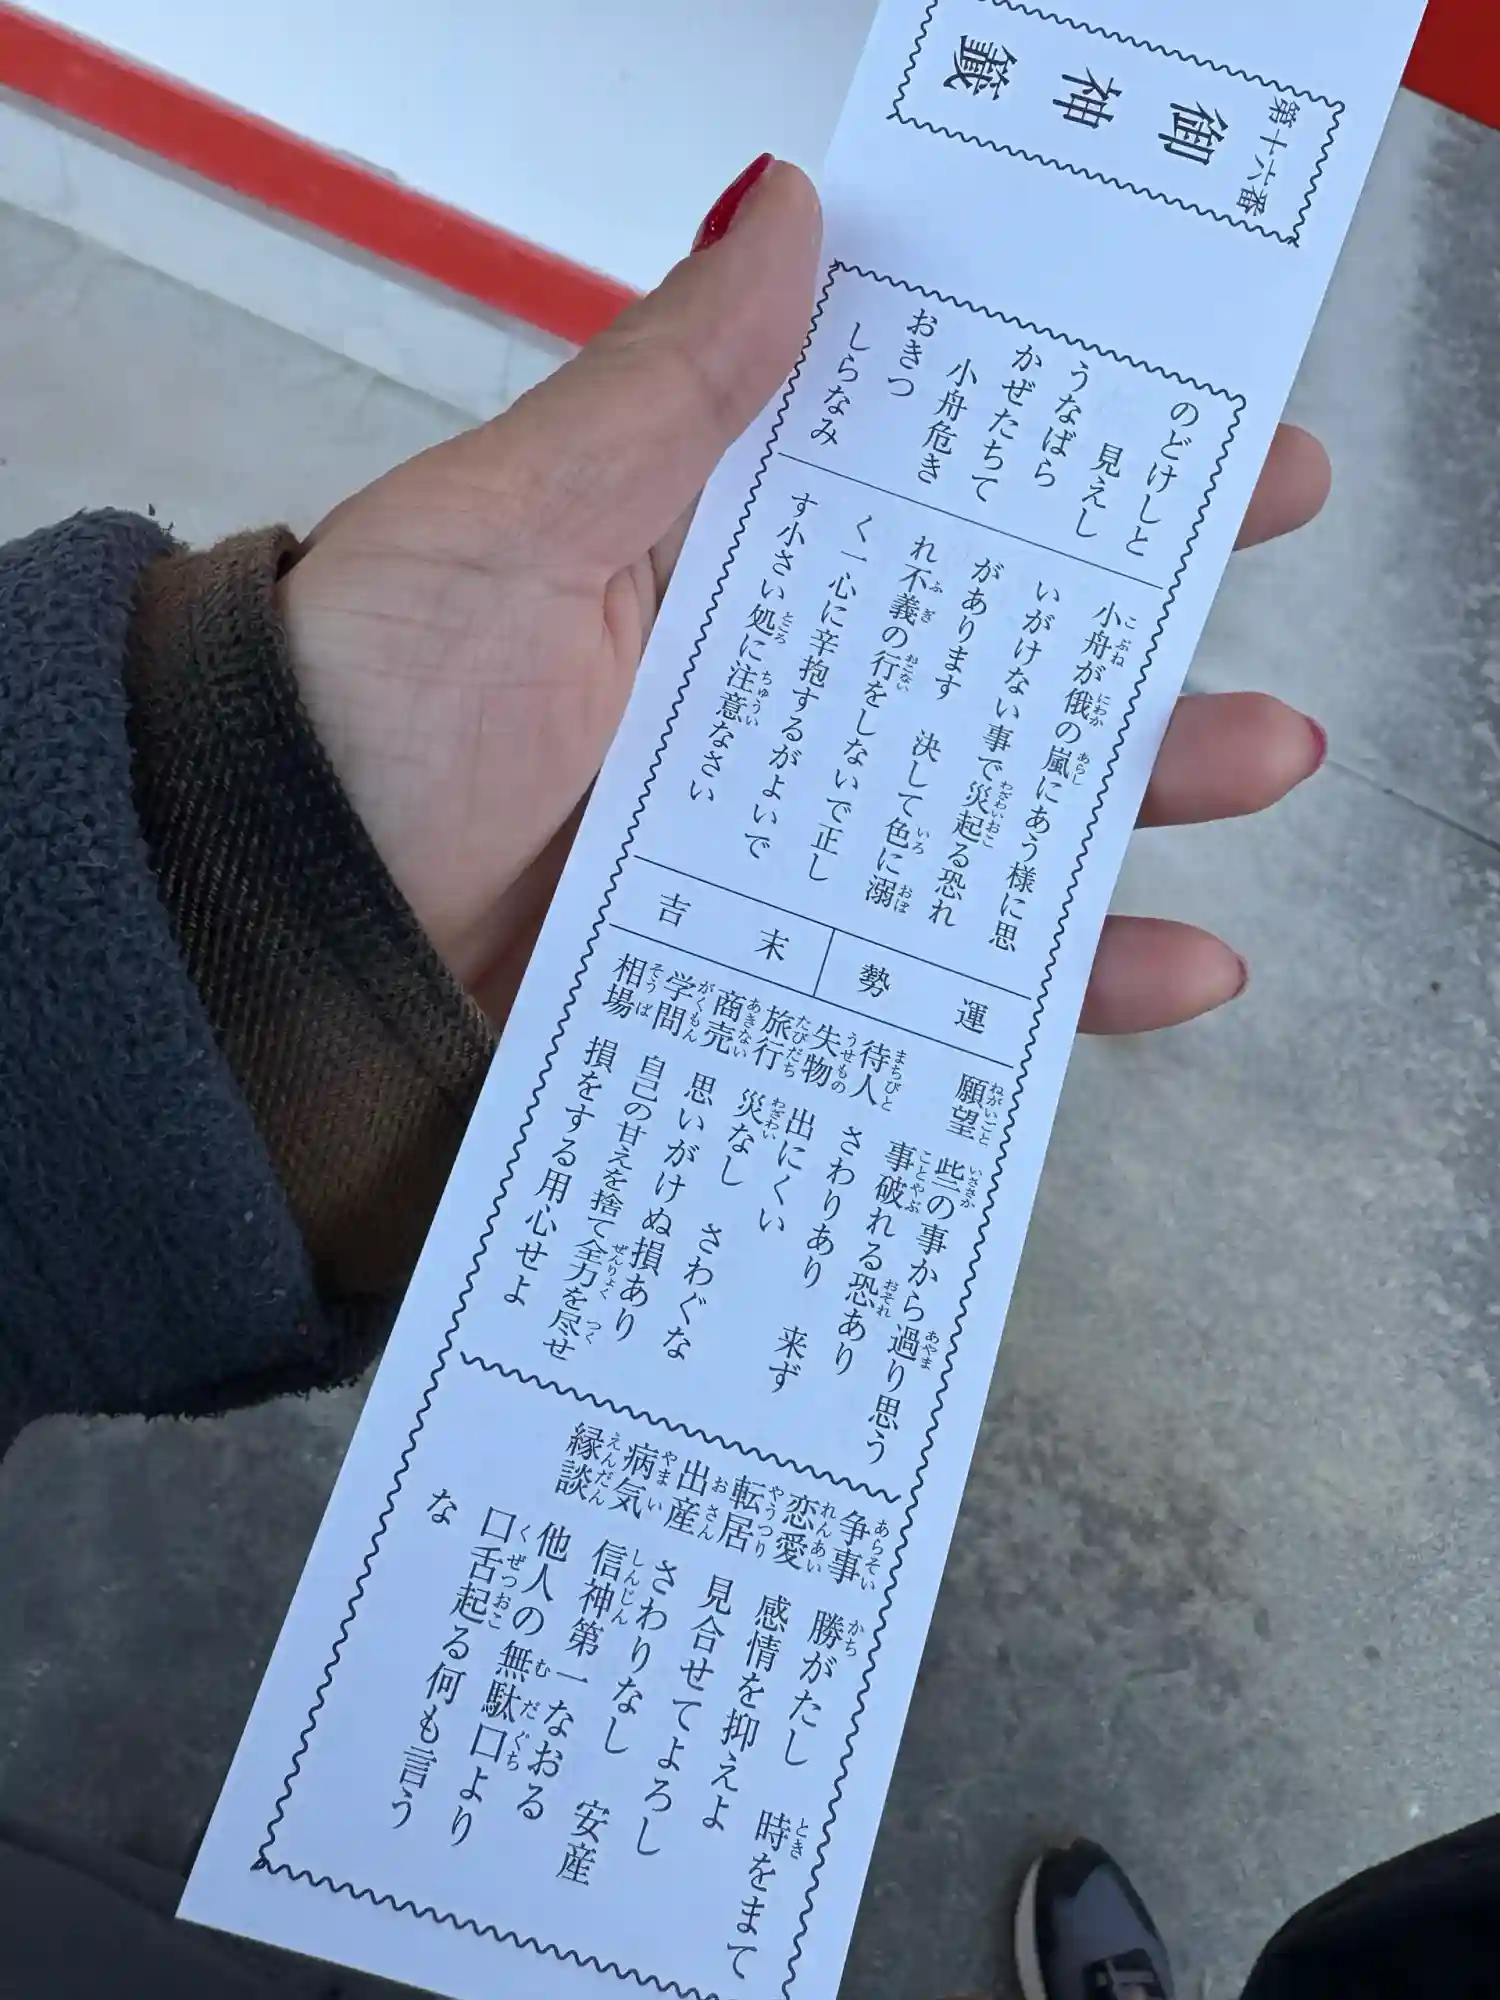 第十六番
御神籤
のどけしと
見えし
うなばら
かぜたちて
小舟危き
おきつ
しらなみ
小舟が俄の嵐にあう様に思
いがけない事で災起る恐れ
があります 決して色に溺
れ不義の行をしないで正し
く一心に辛抱するがよいで
す小さい処に注意なさい
運勢
末吉
願望 些の事から過り思う
事破れる恐あり
待人 さわりあり 来ず
失物 出にくい
旅行 災なし さわぐな
商売 思いがけぬ損あり
学問 自己の甘えを捨て全力を尽せ
相場 損をする用心せよ
争事 勝がたし 時をまて
恋愛 感情を抑えよ
転居 見合せてよろし
出産 さわりなし 安産
病気 信神第一なおる
縁談 他人の無駄口より
口舌起る何も言う
な